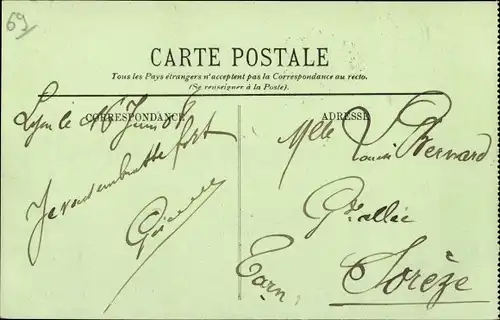 69
CARTE POSTALE
Tous les Pays étrangers n'acceptent pas la Correspondance au recto.
(Se renseigner à la Poste).
CORRESPONDANCE
ADRESSE
Lyon le 16 Juin
Je vous embrasse fort
Mlle Bernard
Allée
Sorèze
Tarn,